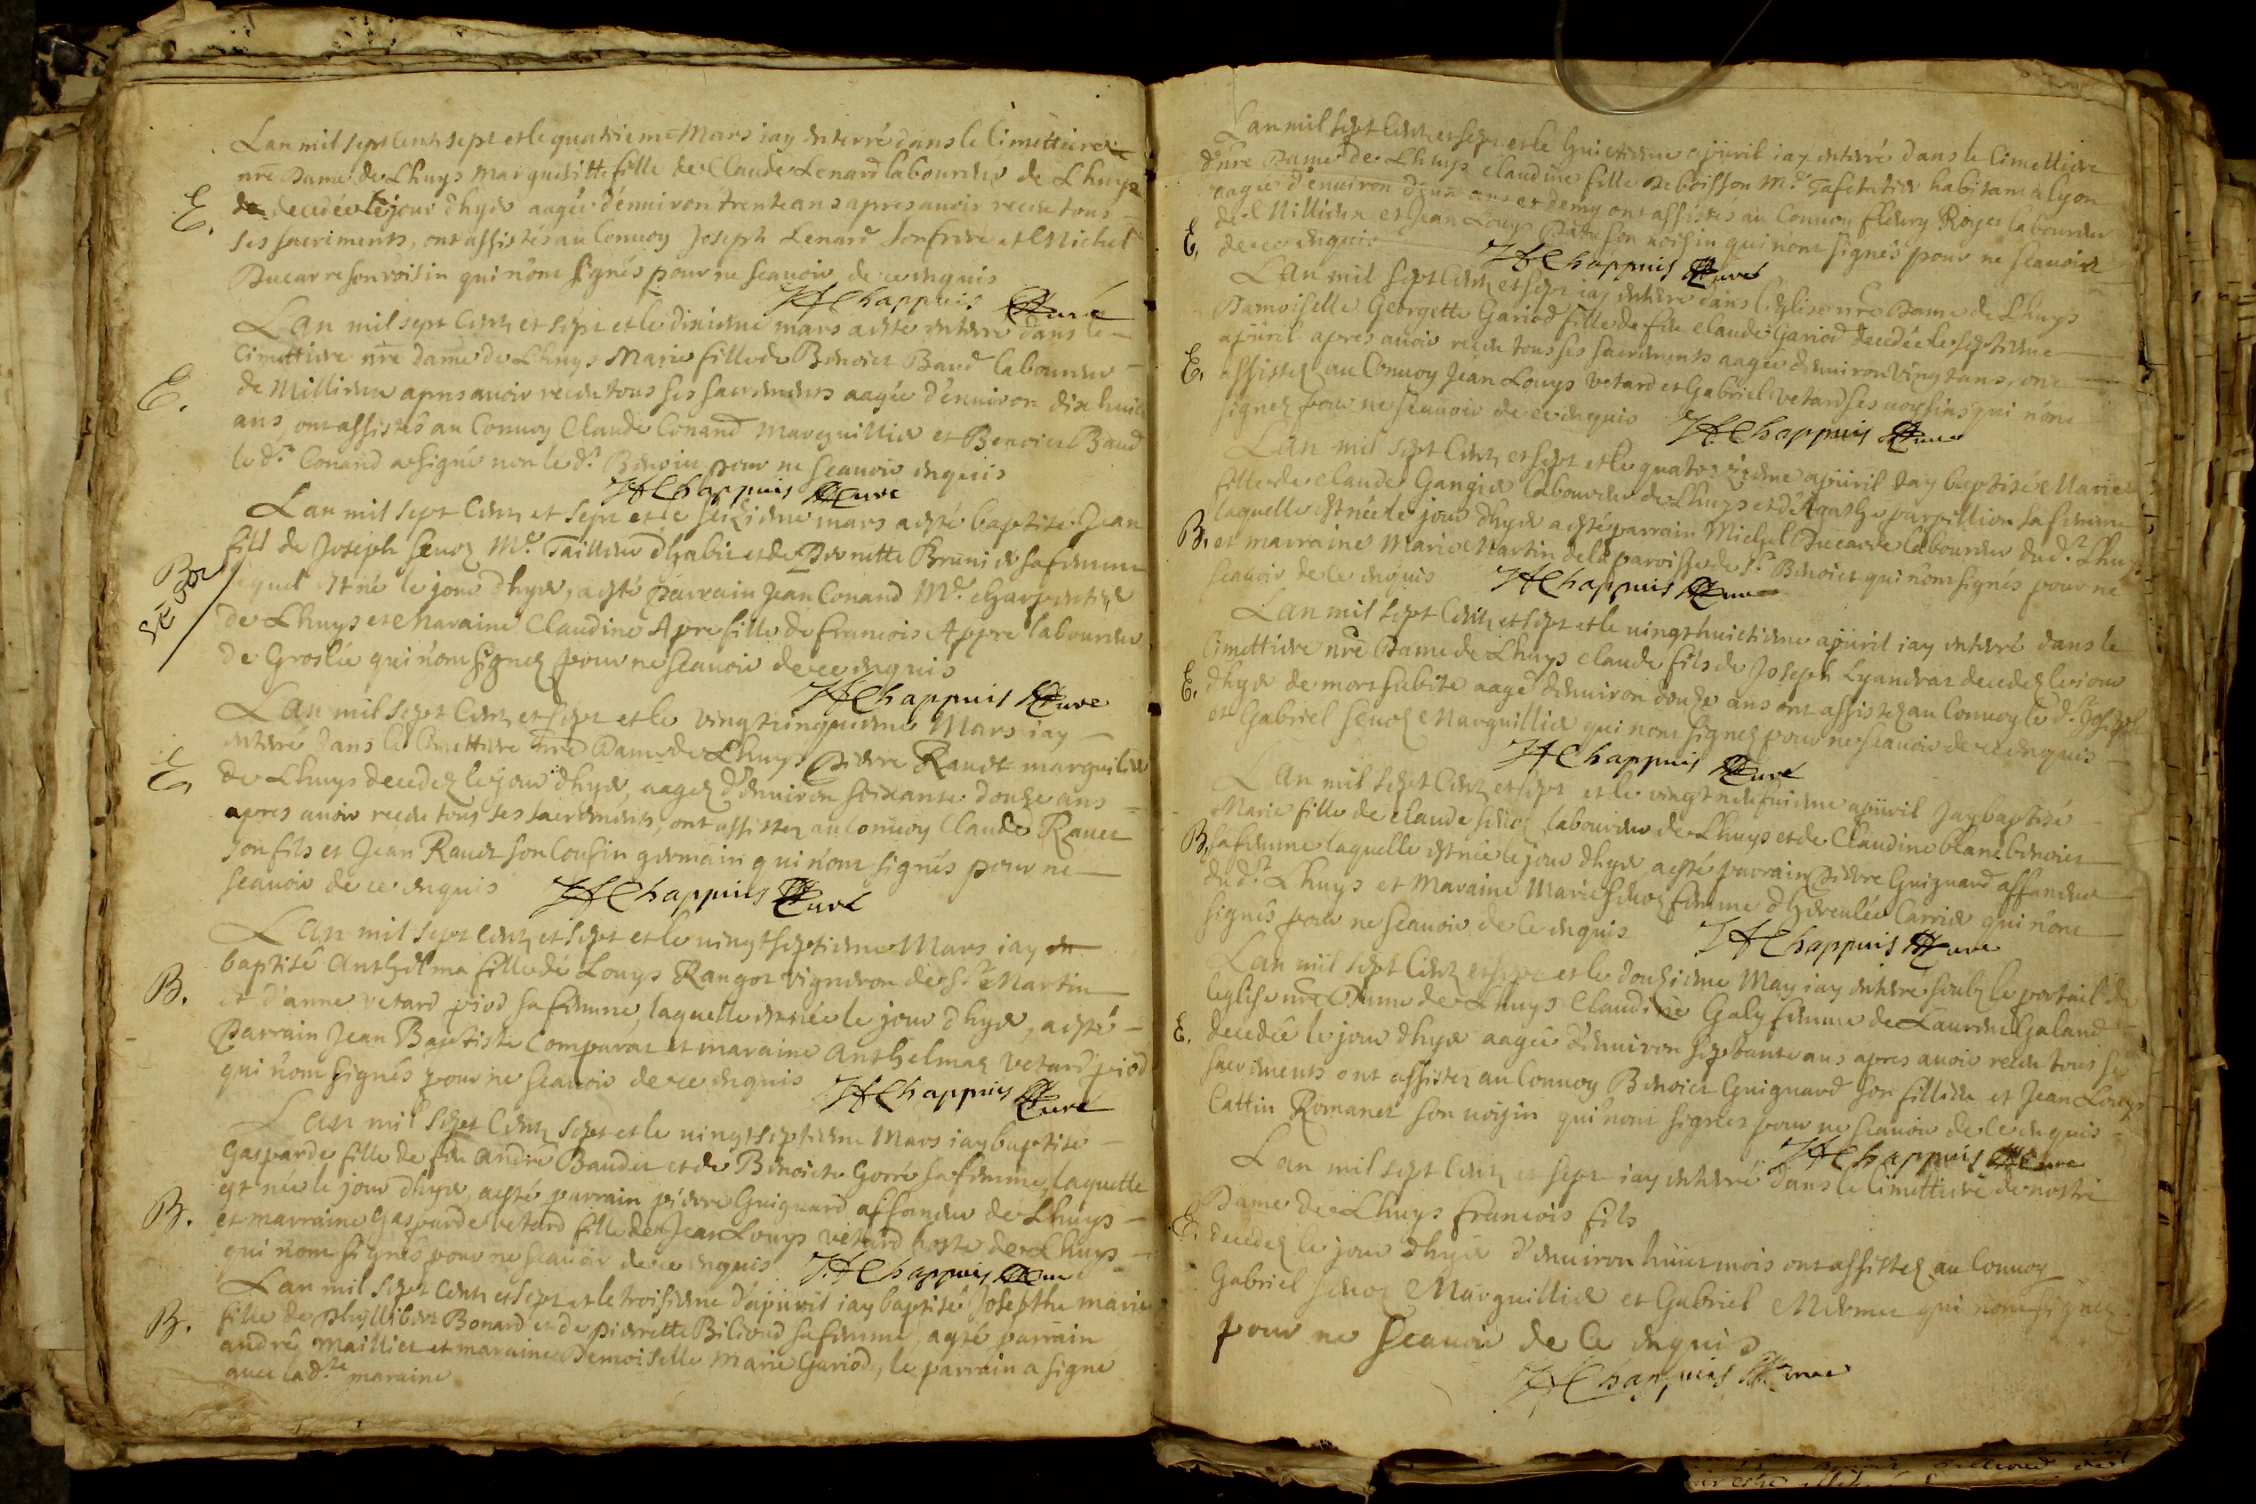 Lan mil sept cents sept et le quatrieme Mars iay enterré dans le Cimettiere
nre Dame de Lhuys Margueritte fille de Claude Lenard laboureur de Lhuys
E.
decedée le jour d'hyer aagée d'environ trente ans apres avoir receu tous
ses sacrements, ont assistés au Convoy Joseph Lenard son frere et Michel
Ducarre son voisin qui n'ont signés pour ne scavoir de ce enquis
JHChappuis Curé
Lan mil sept Cents et sept et le dixieme mars a esté enterré dans le
Cimettiere nre dame de Lhuys Marie fille de Benoict Baud laboureur
E.
de Millieu apres avoir receu tous ses sacrements aagée d'environ dix huict
ans, ont assistés au Convoy Claude Conand Marguillier et Benoict Baud
le dt Conand a signé non le dt Benoict pour ne scavoir enquis
JHChappuis Curé
Lan mil sept Cents et sept et le seizieme mars a esté baptisé Jean
fils de Joseph Sevoz Me Tailleur d'habit et de Pernette Brunier sa femme
B.
Sevoz
lequel est né le jour d'hyer, a esté parrain Jean Conand Me charpentier
de Lhuys et Maraine Claudine Apre fille de francois Appre laboureur
de Groslée qui n'ont signez pour ne scavoir de ce enquis
JHChappuis Curé
Lan mil sept Cents et sept et le vingt cinquieme Mars iay
enterré dans le Cimettiere nre Dame de Lhuys Pierre Ravet marguilier
E.
de Lhuys decedez le jour d'hyer, aagez d'environ soixante douze ans
apres avoir receu tous ses sacrements, ont assistez au Convoy Claude Ravet
son fils et Jean Ravet son Cousin germain qui n'ont signés pour ne
scavoir de ce enquis JHChappuis Curé
Lan mil sept cents et sept et le vingt septieme Mars iay
baptisé Anthelma fille de Louys Rangot vigneron de St Martin
B.
et d'anne vetard piod sa femme, laquelle est née le jour d'hyer, a esté
Parrain Jean Baptiste Comparat et maraine Anthelmaz Vetard piod
qui n'ont signés pour ne scavoir de ce enquis JHChappuis Curé
Lan mil sept Cents sept et le vingt septieme Mars iay baptisé
Gasparde fille de feu André Baudet et de Benoicte Gorré sa femme, laquelle
est née le jour d'hyer, a esté parrain pierre Guignard affaneur de Lhuys
B.
et marraine Gasparde vetard fille de Jean Louys vetard hoste de Lhuys
qui n'ont signés pour ne scavoir de ce enquis JHChappuis Curé
Lan mil sept Cents et sept et le troisieme d'apuril iay baptisé Josephte marie
B.
fille de Phyllibert Bonard et de pierrette Biliend sa femme, a esté parrain
andré Maillier et maraine Demoiselle Marie Gariod, le parrain a signé
avec la dte maraine
Lan mil sept Cents et sept et le huictieme apuril iay enterré dans le Cimettiere
de nre Dame de Lhuys Claudine fille de boisson Md Tafetatier habitant a Lyon
aagée d'environ deux ans et demy ont assistés au Convoy fleury Royer laboureur
de Millieu et Jean Louys son voisin qui n'ont signés pour ne scavoir
E.
de ce enquis JHChappuis Curé
Lan mil sept Cents et sept iay enterré dans l'eglise nre Dame de Lhuys
Damoiselle Georgette Gariod fille de feu Claude Gariod decedée le septieme
apuril apres avoir receu tous ses sacrements aagée d'environ vingt ans, ont
E.
assistez au Convoy Jean Louys vetard et Gabriel vetard ses voysins qui n'ont
signez pour ne scavoir de ce enquis JHChappuis Curé
Lan mil sept Cents et sept et le quatorzieme apuril Jay baptisé Marie
fille de Claude Gangier laboureur de Lhuys et d'Agathe parpillion sa femme
laquelle est née le jour d'hyer a esté parrain Michel Ducarre laboureur du dt Lhuys
B.
et marraine Marie Martin de la parroisse de St Benoict qui n'ont signés pour ne
scavoir de ce enquis JHChappuis Curé
Lan mil sept Cents et sept et le vingt huictieme apuril iay enterré dans le
Cimettiere nre Dame de Lhuys Claude fils de Joseph Lyandrat decedez le jour
E.
d'hyer de mort subite aagé d'environ douze ans ont assistez au Convoy le dt Joseph
et Gabriel Sevoz Marguillier qui n'ont signez pour ne scavoir de ce enquis
JHChappuis Curé
Lan mil sept Cents et sept et le vingt neufvieme apuril Jay baptisé
Marie fille de Claude Sevoz laboureur de Lhuys et de Claudine blanc benoict
B.
sa femme laquelle est née le jour d'hyer a esté parrain Pierre Guignard affaneur
du dt Lhuys et Maraine Marie Sevoz femme d'hercules Carrier qui n'ont
signés pour ne scavoir de ce enquis JHChappuis Curé
Lan mil sept Cents et sept et le douzieme May iay enterré soubz le portail de
leglise nre Dame de Lhuys Claudine Galy femme de Laurent Galand
E.
decedée le jour d'hyer aagée d'environ septante ans apres avoir receu tous ses
sacrements ont assistez au Convoy Benoict Guignard son filliere et Jean Louys
Cattin Romanet son voisin qui n'ont signez pour ne scavoir de ce enquis
JHChappuis Curé
Lan mil sept Cents et sept iay enterré dans le Cimettiere de nostre
Dame de Lhuys francois fils
E.
decedez le jour d'hyer d'environ huict mois ont assistez au Convoy
Gabriel Sevoz Marguillier et Gabriel Mermet qui n'ont signez
pour ne scavoir de ce enquis
JHChappuis Curé